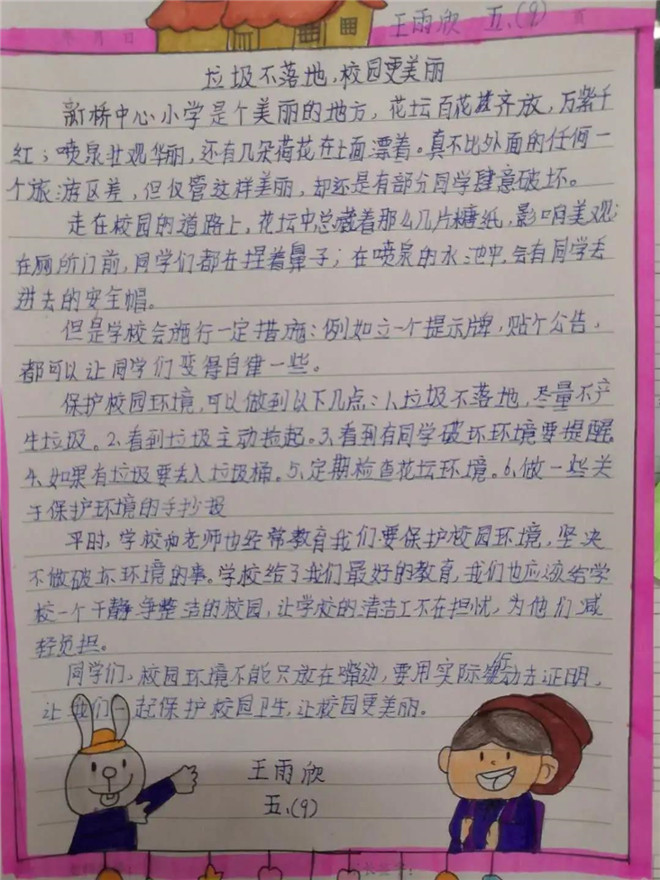 王雨欣 五.(9)
垃圾不落地,校园更美丽
新桥中心小学是个美丽的地方,花坛百花甚齐放,万紫千
红;喷泉壮观华丽,还有几朵荷花在上面漂着。真不比外面的任何一
个旅游区差,但仅管这样美丽,却还是有部分同学肆意破坏。
走在校园的道路上,花坛中总藏着那么几片糖纸,影响美观;
在厕所门前,同学们都在捏着鼻子;在喷泉的水池中,会有同学丢
进去的安全帽。
但是学校会施行一定措施:例如立一个提示牌,贴个公告,
都可以让同学们变得自律一些。
保护校园环境,可以做到以下几点:1、垃圾不落地,尽量不产
生垃圾。2、看到垃圾主动捡起。3、看到有同学破坏环境要提醒。
4、如果有垃圾要丢入垃圾桶。5、定期检查花坛环境。6、做一些关
于保护环境的手抄报
平时,学校和老师也经常教育我们要保护校园环境,坚决
不做破坏环境的事。学校给了我们最好的教育,我们也应该给学
校一个干静净整洁的校园,让学校的清洁工不在担忧,为他们减
轻负担。
同学们,校园环境不能只放在嘴边,要用实际行动去证明,
让我们一起保护校园卫生,让校园更美丽。
王雨欣
五.(9)